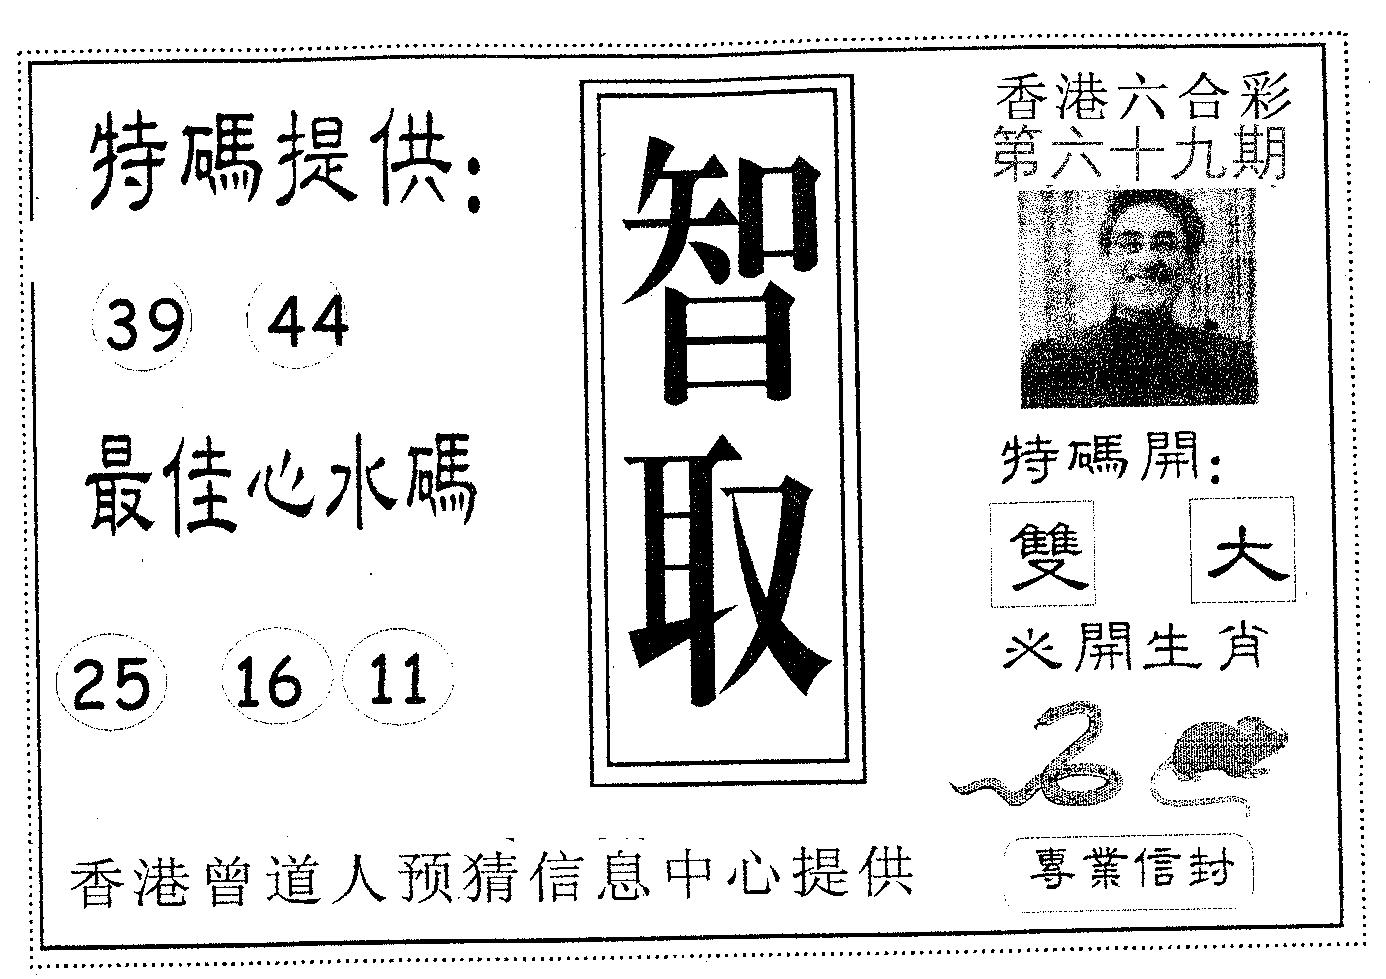 特碼提供:
39 44
最佳心水碼
25 16 11
智取
香港六合彩
第六十九期
特碼開:
雙 大
必開生肖
香港曾道人预猜信息中心提供
專業信封